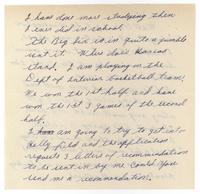 I have done more studying then
I ever did in school.
The Big Six is in quite a jumble
isn't it. Where does Kansas
stand. I am playing on the
Dept of Interior basketball team.
We won the 1st half and have
won the 1st 3 games of the second
half.
I am going to try to get into
Kelly Field and the application
requests 3 letters of recommendation
to be sent in by me. Could you
send me a recommendation.